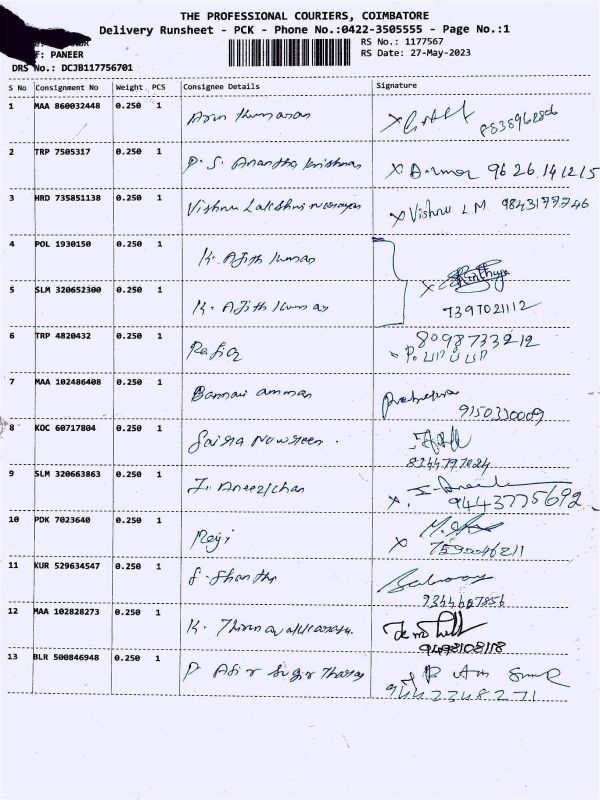 THE PROFESSIONAL COURIERS, COIMBATORE
Delivery Runsheet - PCK - Phone No.:0422-3505555 - Page No.:1
RS No.: 1177567
F: PANEER
RS Date: 27-May-2023
DRS No.: DCJB117756701
S No Consignment No Weight PCS Consignee Details Signature
1 MAA 860032448 0.250 1 Arun Kumaran
2 TRP 7505317 0.250 1 P. S. Anantha Krishnan 96 26 14 12 15
3 HRD 735851138 0.250 1 Vishnu Lakshmi Narayan Vishnu L M 9843177746
4 POL 1930150 0.250 1 K. Ajith Kumar
5 SLM 320652300 0.250 1 K. Ajith Kumar 7397021112
6 TRP 4820432 0.250 1 Rafiq 8098733212
7 MAA 102486408 0.250 1 Bannari amman 9150330009
8 KOC 60717804 0.250 1 Saisha Nowsreen. 8344797024
9 SLM 320663863 0.250 1 J. Aneez Khan 9443775692
10 PDK 7023640 0.250 1 Reji
11 KUR 529634547 0.250 1 S. Shantha 9344607856
12 MAA 102828273 0.250 1 K. 9498108118
13 BLR 500846948 0.250 1 P 9442248271